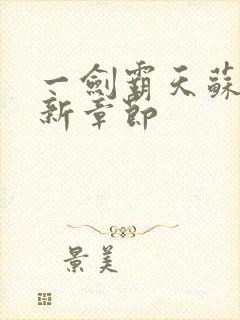 一劍霸天蘇
新章節
景美